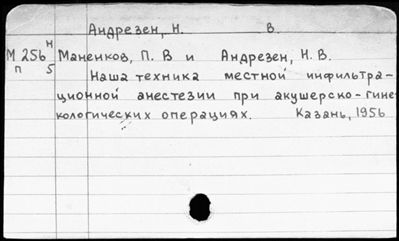 Андрезен, Н. В.
М 256 н Маненков, П. В и Андрезен, Н. В.
п 5 Наша техника местной инфильтра-
ционной анестезии при акушерско-гине-
кологических операциях. Казань, 1956